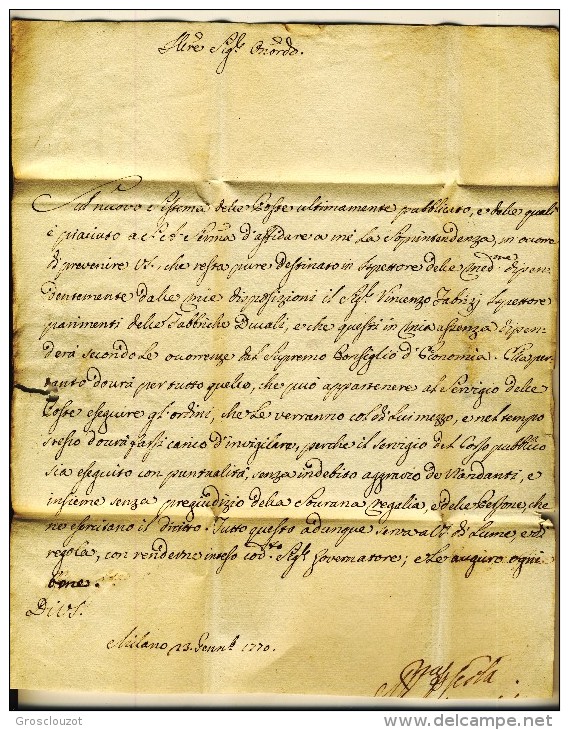 Illre Sigr. Onordo.
Sul nuovo sistema delle Poste ultimamente pubblicato, e delle quali
è piaciuto a S. A. Srma d'affidare a me la Sopintendenza, in occore
di prevenire VS. che resta pure destinato in Ispettore delle medme dipen
dentemente dalle mie disposizioni il Sigr. Vincenzo Fabrizj Ispettore
parimenti delle Fabbriche Ducali, e che questi in mia assenza dipen
derà secondo le occorrenze dal Supremo Consiglio d'Economia. Ella per
tanto dovrà per tutto quello, che può appartenere al Servigio delle
Poste eseguire gl'ordini, che le verranno col di lui mezzo, e nel tempo
stesso dovrà farsi carico d'invigilare, perche il servigio del Corso pubblico
sia eseguito con puntualità, senza indebito aggravio de Viandanti, e
insieme senza pregiudizio della Sovrana regalia, e delle Persone, che
ne esercitano il diritto. Tutto questo adunque serva a VS. di Lume, e di
regola, con renderne inteso codto. Sigr. Governatore; e le auguro ogni
bene.
Di VS.
Milano 23. Gennro. 1770.
Groscl​ouzot
delcampe.net